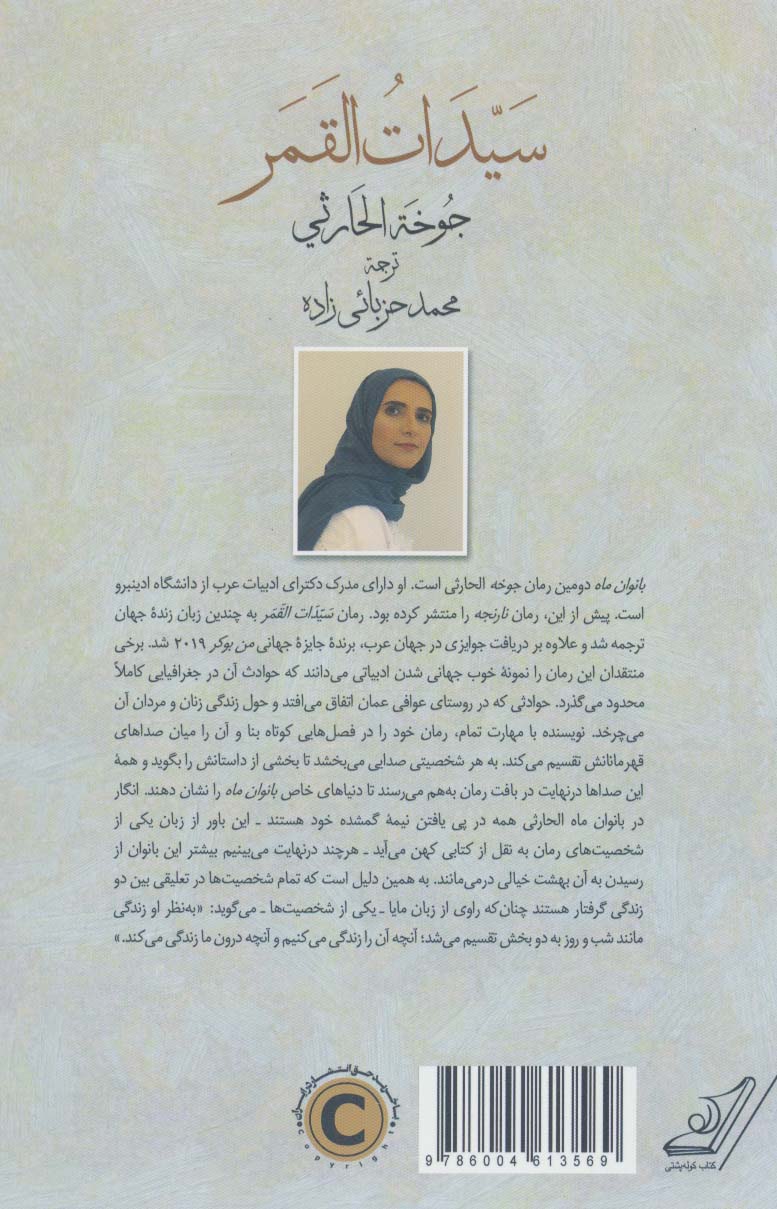 سَيِّدَاتُ القَمَر
جُوخَة الحَارثي
ترجمة
محمد حزبائی زاده
بانوان ماه دومین رمان جوخه الحارثی است. او دارای مدرک دکترای ادبیات عرب از دانشگاه ادینبرو
است. پیش از این، رمان نارنجه را منتشر کرده بود. رمان سَیّدَات القَمَر به چندین زبان زندهٔ جهان
ترجمه شد و علاوه بر دریافت جوایزی در جهان عرب، برندهٔ جایزهٔ جهانی من بوکر ۲۰۱۹ شد. برخی
منتقدان این رمان را نمونهٔ خوب جهانی شدن ادبیاتی می‌دانند که حوادث آن در جغرافیایی کاملاً
محدود می‌گذرد. حوادثی که در روستای عوافی عمان اتفاق می‌افتد و حول زندگی زنان و مردان آن
می‌چرخد. نویسنده با مهارت تمام، رمان خود را در فصل‌هایی کوتاه بنا و آن را میان صداهای
قهرمانانش تقسیم می‌کند. به هر شخصیتی صدایی می‌بخشد تا بخشی از داستانش را بگوید و همهٔ
این صداها درنهایت در بافت رمان به‌هم می‌رسند تا دنیاهای خاص بانوان ماه را نشان دهند. انگار
در بانوان ماه الحارثی همه در پی یافتن نیمهٔ گمشده خود هستند ـ این باور از زبان یکی از
شخصیت‌های رمان به نقل از کتابی کهن می‌آید ـ هرچند درنهایت می‌بینیم بیشتر این بانوان از
رسیدن به آن بهشت خیالی درمی‌مانند. به همین دلیل است که تمام شخصیت‌ها در تعلیقی بین دو
زندگی گرفتار هستند چنان‌که راوی از زبان مایا ـ یکی از شخصیت‌ها ـ می‌گوید: «به‌نظر او زندگی
مانند شب و روز به دو بخش تقسیم می‌شد؛ آنچه آن را زندگی می‌کنیم و آنچه درون ما زندگی می‌کند.»
با خرید حق انتشار در ایران
C
copyright
9 786004 613569
کتاب کوله‌پشتی